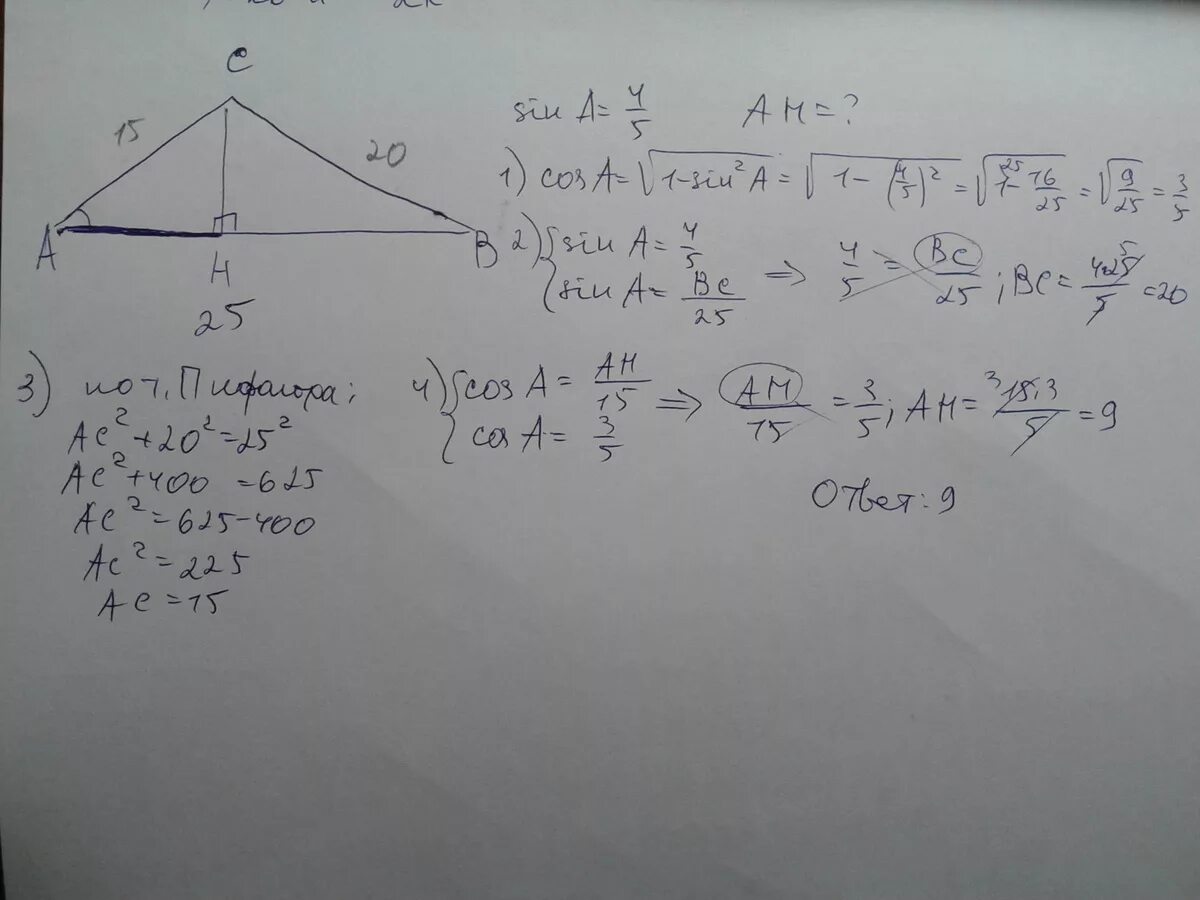 C
15
20
A
H
B
25
sin A = 4/5 AH = ?
1) cos A = √(1-sin²A) = √(1-(4/5)²) = √(1-16/25) = √(9/25) = 3/5
2) { sin A = 4/5
{ sin A = BC/25 => 4/5 = BC/25 ; BC = 4·25/5 = 20
3) по т. Пифагора:
AC² + 20² = 25²
AC² + 400 = 625
AC² = 625 - 400
AC² = 225
AC = 15
4) { cos A = AH/15
{ cos A = 3/5 => AH/15 = 3/5 ; AH = 15·3/5 = 9
Ответ: 9